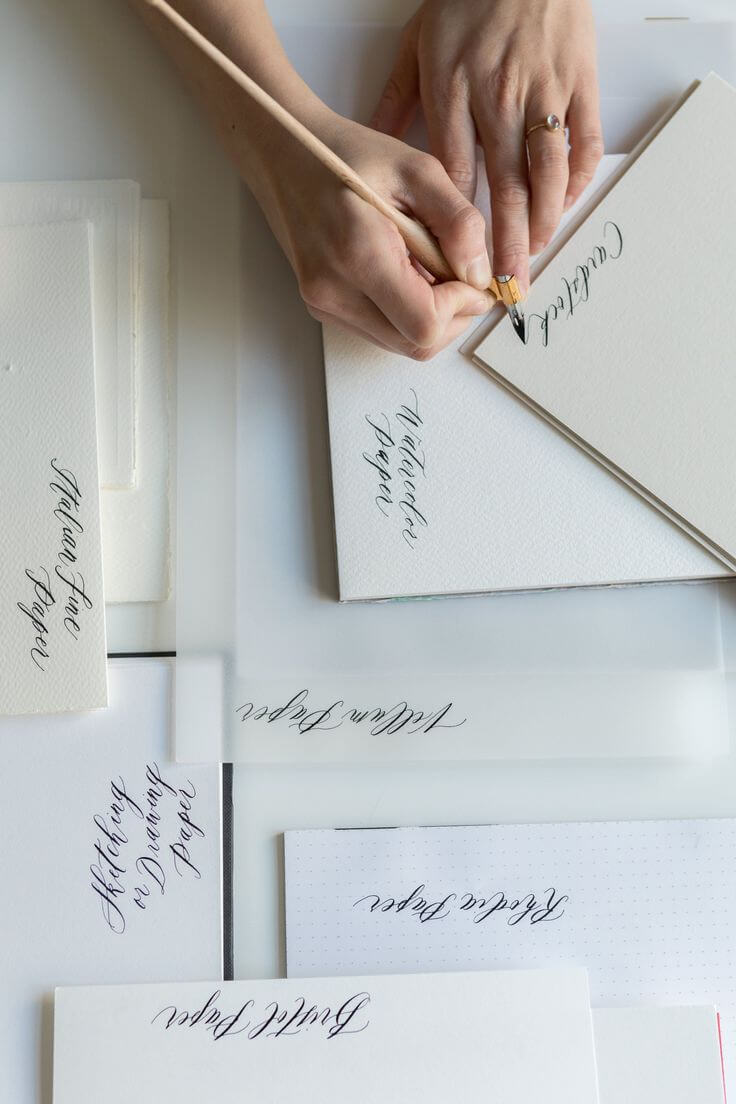 Cardstock
Watercolor
Paper
Italian Fine
Paper
Vellum Paper
Sketching
or Drawing
Paper
Rhodia Paper
Bristol Paper